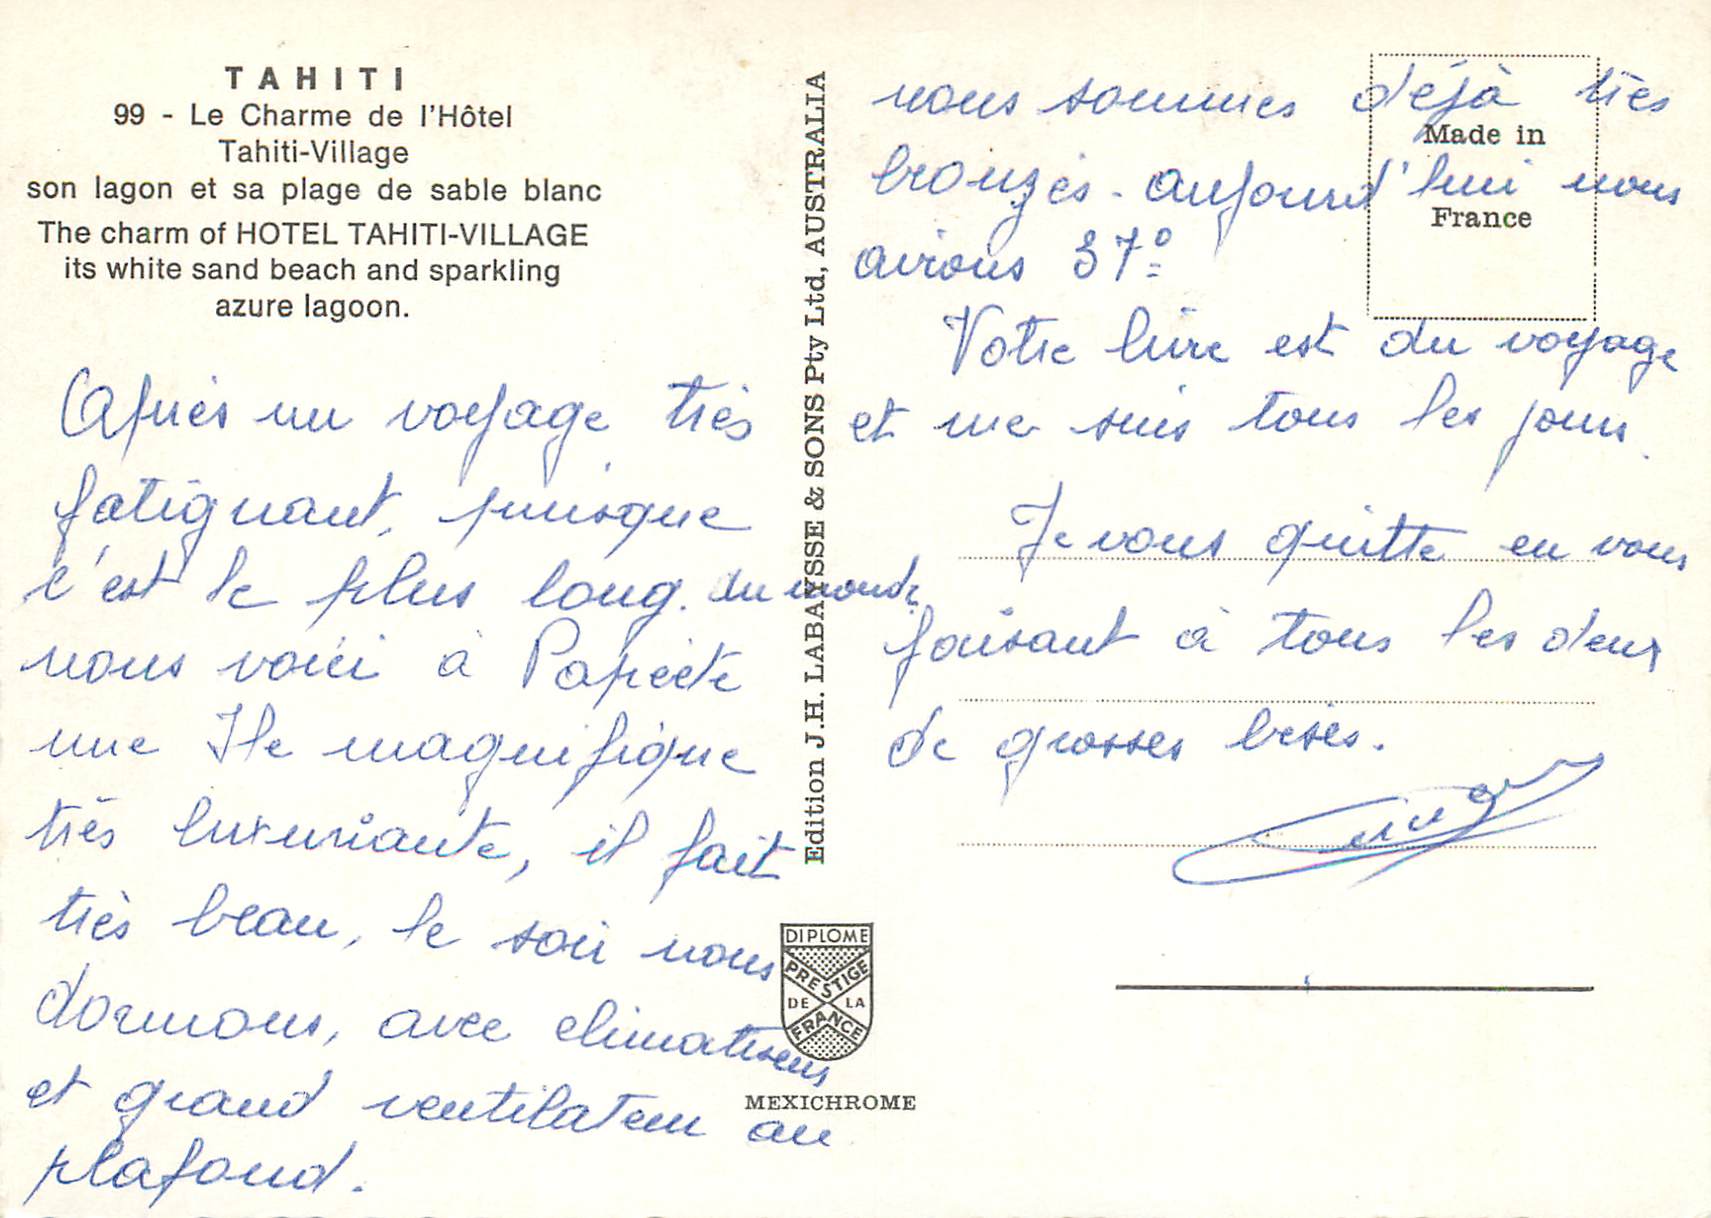 TAHITI
99 - Le Charme de l'Hôtel
Tahiti-Village
son lagon et sa plage de sable blanc
The charm of HOTEL TAHITI-VILLAGE
its white sand beach and sparkling
azure lagoon.
Après un voyage très
fatiguant, puisque
c'est le plus long. du monde
nous voici à Papeete
une Ile magnifique
très luxuriante, il fait
très beau, le soir nous
dormons, avec climatiseurs
et grand ventilateur au
plafond.
Edition J.H. LABAYSSE & SONS Pty Ltd, AUSTRALIA
DIPLOME
PRESTIGE
DE LA
FRANCE
MEXICHROME
Made in
France
nous sommes déjà très
bronzés - aujourd'hui nous
avions 37°
Votre livre est du voyage
et me suis tous les jours.
Je vous quitte en vous
faisant à tous les deux
de grosses bises.